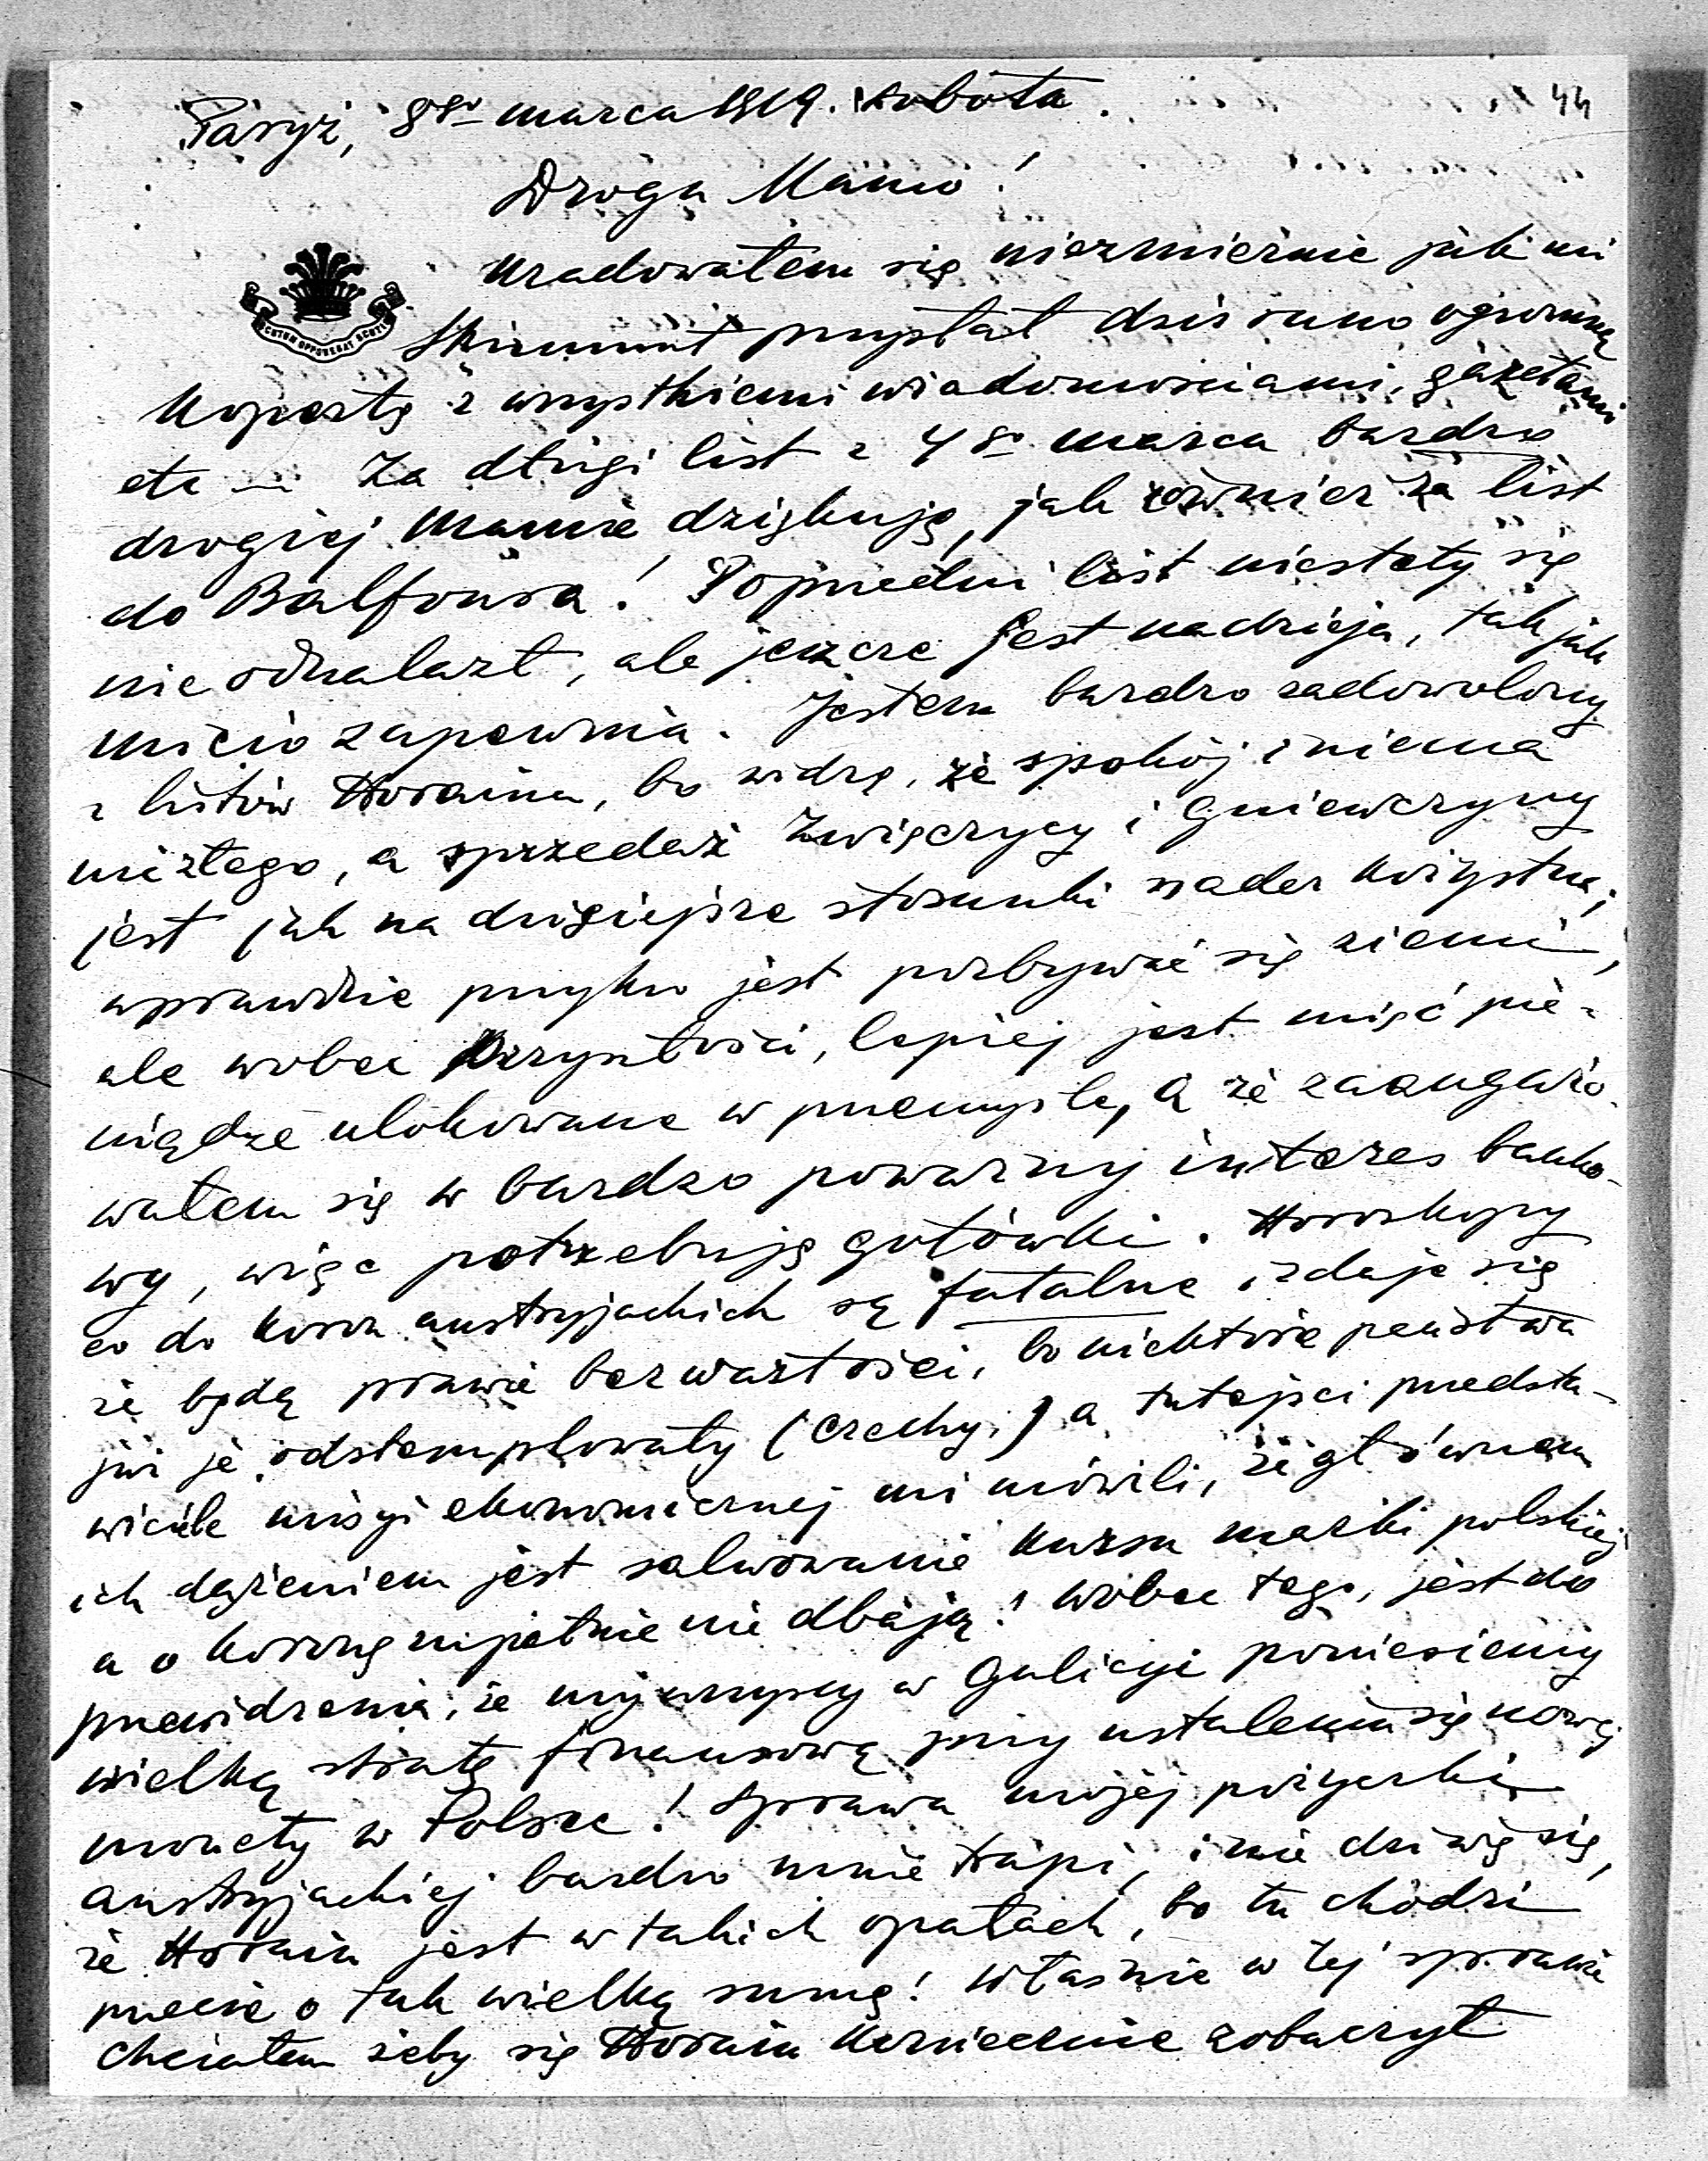 44
Paryż, 8go marca 1919. sobota.
Droga Mamo!
SCUTUM OPPONEBAT SCUTIS
Uradowałem się niezmiernie jak mi
Skirmunt przysłał dziś rano ogromną
kopertę z wszystkiemi wiadomościami, gazetami
etc — Za długi list z 4go marca bardzo
drogiej Mamie dziękuję, jak również za list
do Balfoura! Poprzedni list niestety się
nie odnalazł, ale jeszcze jest nadzieja, tak jak
Micio zapewnia. Jestem bardzo zadowolony
z listów Horaina, bo widzę, że spokój i niema
nic złego, a sprzedaż Zwięczycy i Gniewczyny
jest jak na dzisiejsze stosunki nader korzystna;
wprawdzie przykro jest pozbywać się ziemi,
ale wobec przyszłości, lepiej jest mieć pie-
niądze ulokowane w przemyśle, a że zaangażo-
wałem się w bardzo poważny interes banko-
wy, więc potrzebuję gotówki. Horoskopy
co do koron austryjackich są fatalne i zdaje się
że będą prawie bez wartości, bo niektóre państwa
już je odstemplowały (Czechy.) a tutejsi przedsta-
wiciele misyi ekonomicznej mi mówili, że głównem
ich dążeniem jest salwowanie kursu marki polskiej
a o koronę zupełnie nie dbają! Wobec tego, jest do
przewidzenia, że my wszyscy w Galicyi poniesiemy
wielką stratę finansową przy ustaleniu się nowej
monety w Polsce! Sprawa mojej pożyczki
austryjackiej bardzo mnie trapi, i nie dziwię się,
że Horain jest w takich opałach, bo tu chodzi
przecie o tak wielką sumę! Właśnie w tej sprawie
chciałem żeby się Horain koniecznie zobaczył